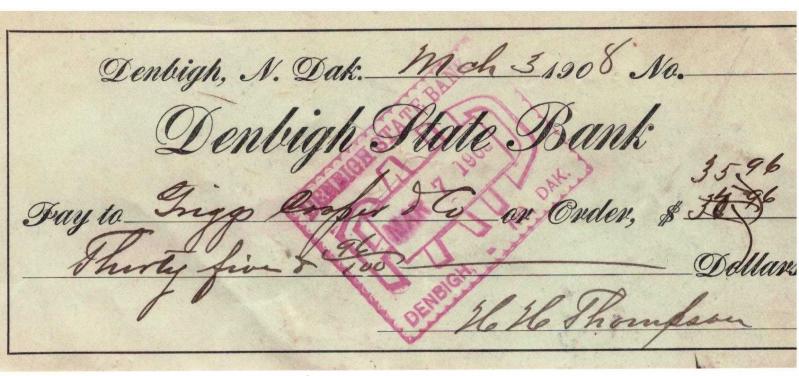 Denbigh, N. Dak. Mch 3 1908 No.
Denbigh State Bank
35.96
Pay to Grigg Cooper & Co or Order, $ 36.96
Thirty five & 96/100 Dollars
H H Thompson
DENBIGH STATE BANK
PAID
MAR 7 1908
DENBIGH, NO. DAK.